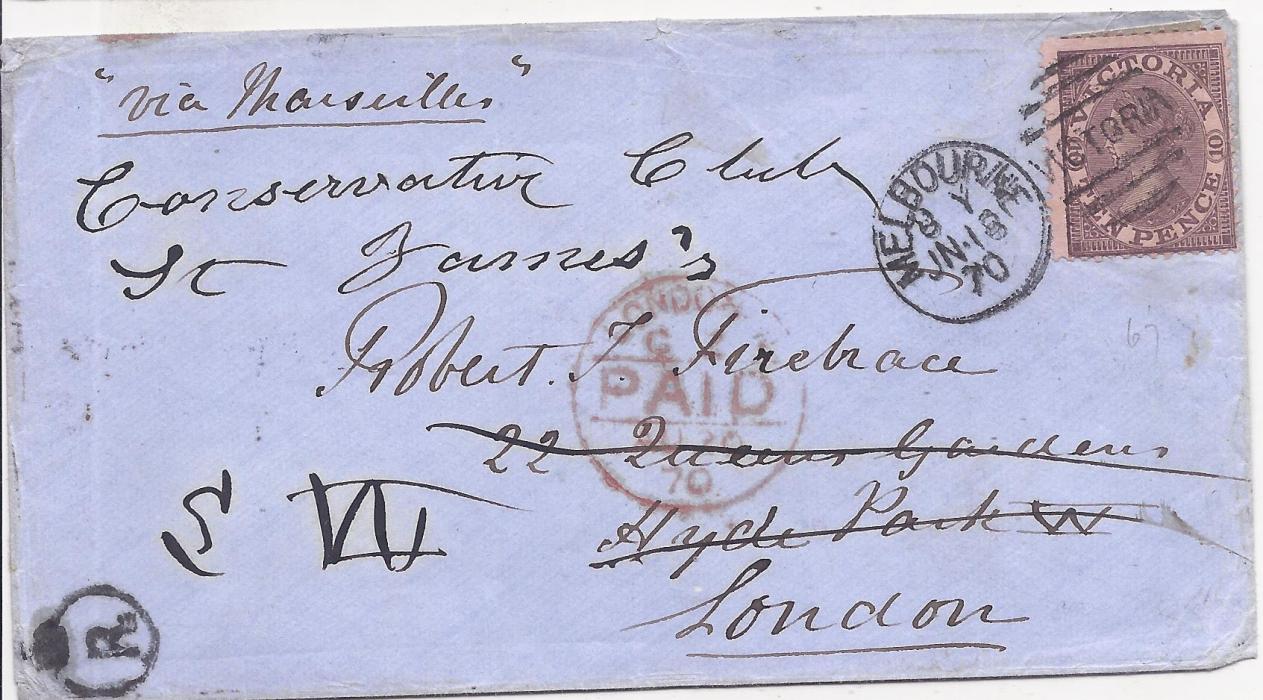 "via Marseilles"
Conservative Club
St James's
Robert. T. Firebrace
22 Queens Gardens
Hyde Park W
London
S W
VICTORIA
TEN PENCE
10
VICTORIA
MELBOURNE
3 Y
JN 18
70
LONDON
PAID
70
R
67